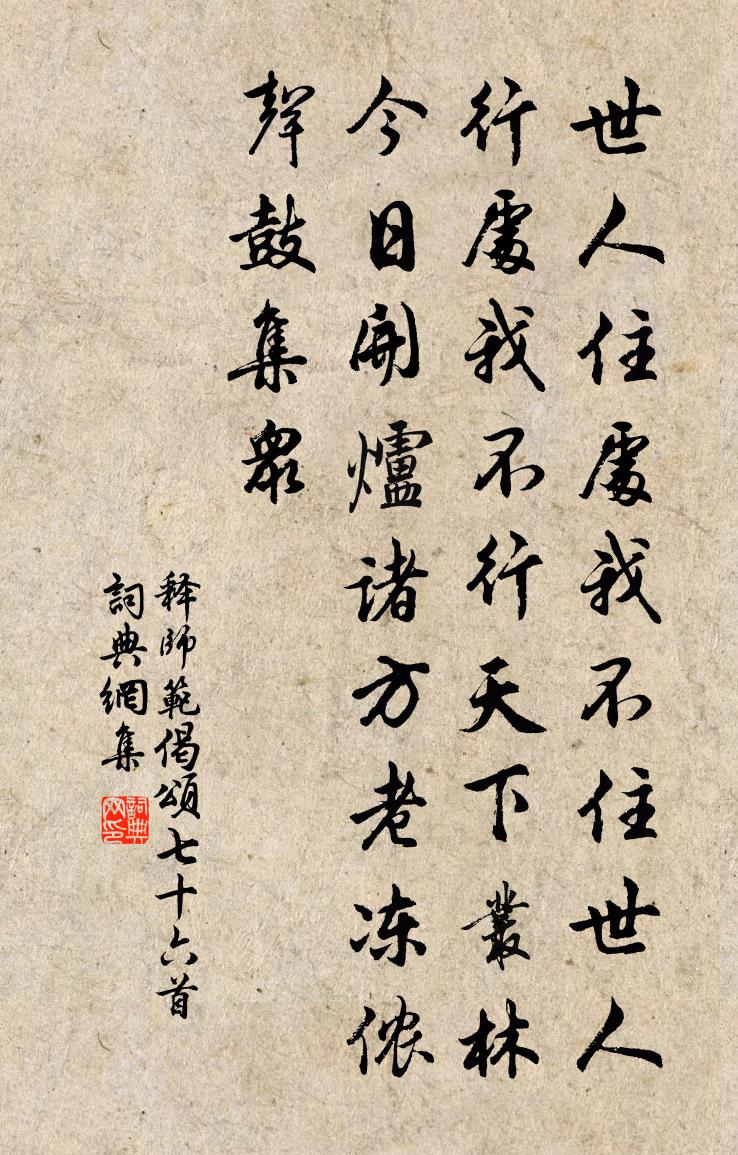 世人住處我不住世人
行處我不行天下叢林
今日開爐諸方老冻侬
聲鼓集眾
释師範偈頌七十六首
詞典網集
詞典
网印